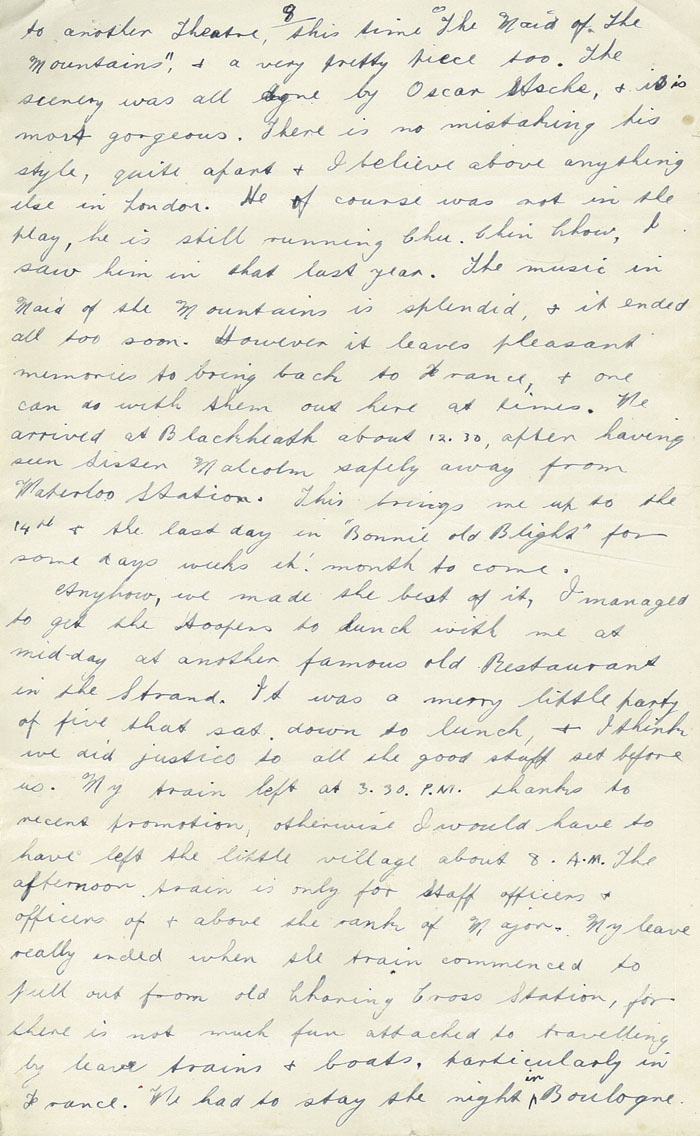 8
to another Theatre, this time "The Maid of The
Mountains", & a very pretty piece too. The
scenery was all done by Oscar Asche, & it is
most gorgeous. There is no mistaking his
style, quite apart & I believe above anything
else in London. He of course was not in the
play, he is still running Chu. Chin Chow, I
saw him in that last year. The music in
Maid of the Mountains is splendid, & it ended
all too soon. However it leaves pleasant
memories to bring back to France, & one
can do with them out here at times. We
arrived at Blackheath about 12.30, after having
seen Sister Malcolm safely away from
Waterloo Station. This brings me up to the
14th & the last day in "Bonnie old Blight" for
some days weeks month to come.
Anyhow, we made the best of it, I managed
to get the Hoopers to lunch with me at
mid-day at another famous old Restaurant
in the Strand. It was a merry little party
of five that sat down to lunch, & I think
we did justice to all the good stuff set before
us. My train left at 3.30. P.M. thanks to
recent promotion, otherwise I would have to
have left the little village about 8. A.M. The
afternoon train is only for Staff officers &
officers of & above the rank of Major. My leave
really ended when the train commenced to
pull out from old Charing Cross Station, for
there is not much fun attached to travelling
by leave trains & boats, particularly in
France. We had to stay the night in Boulogne.